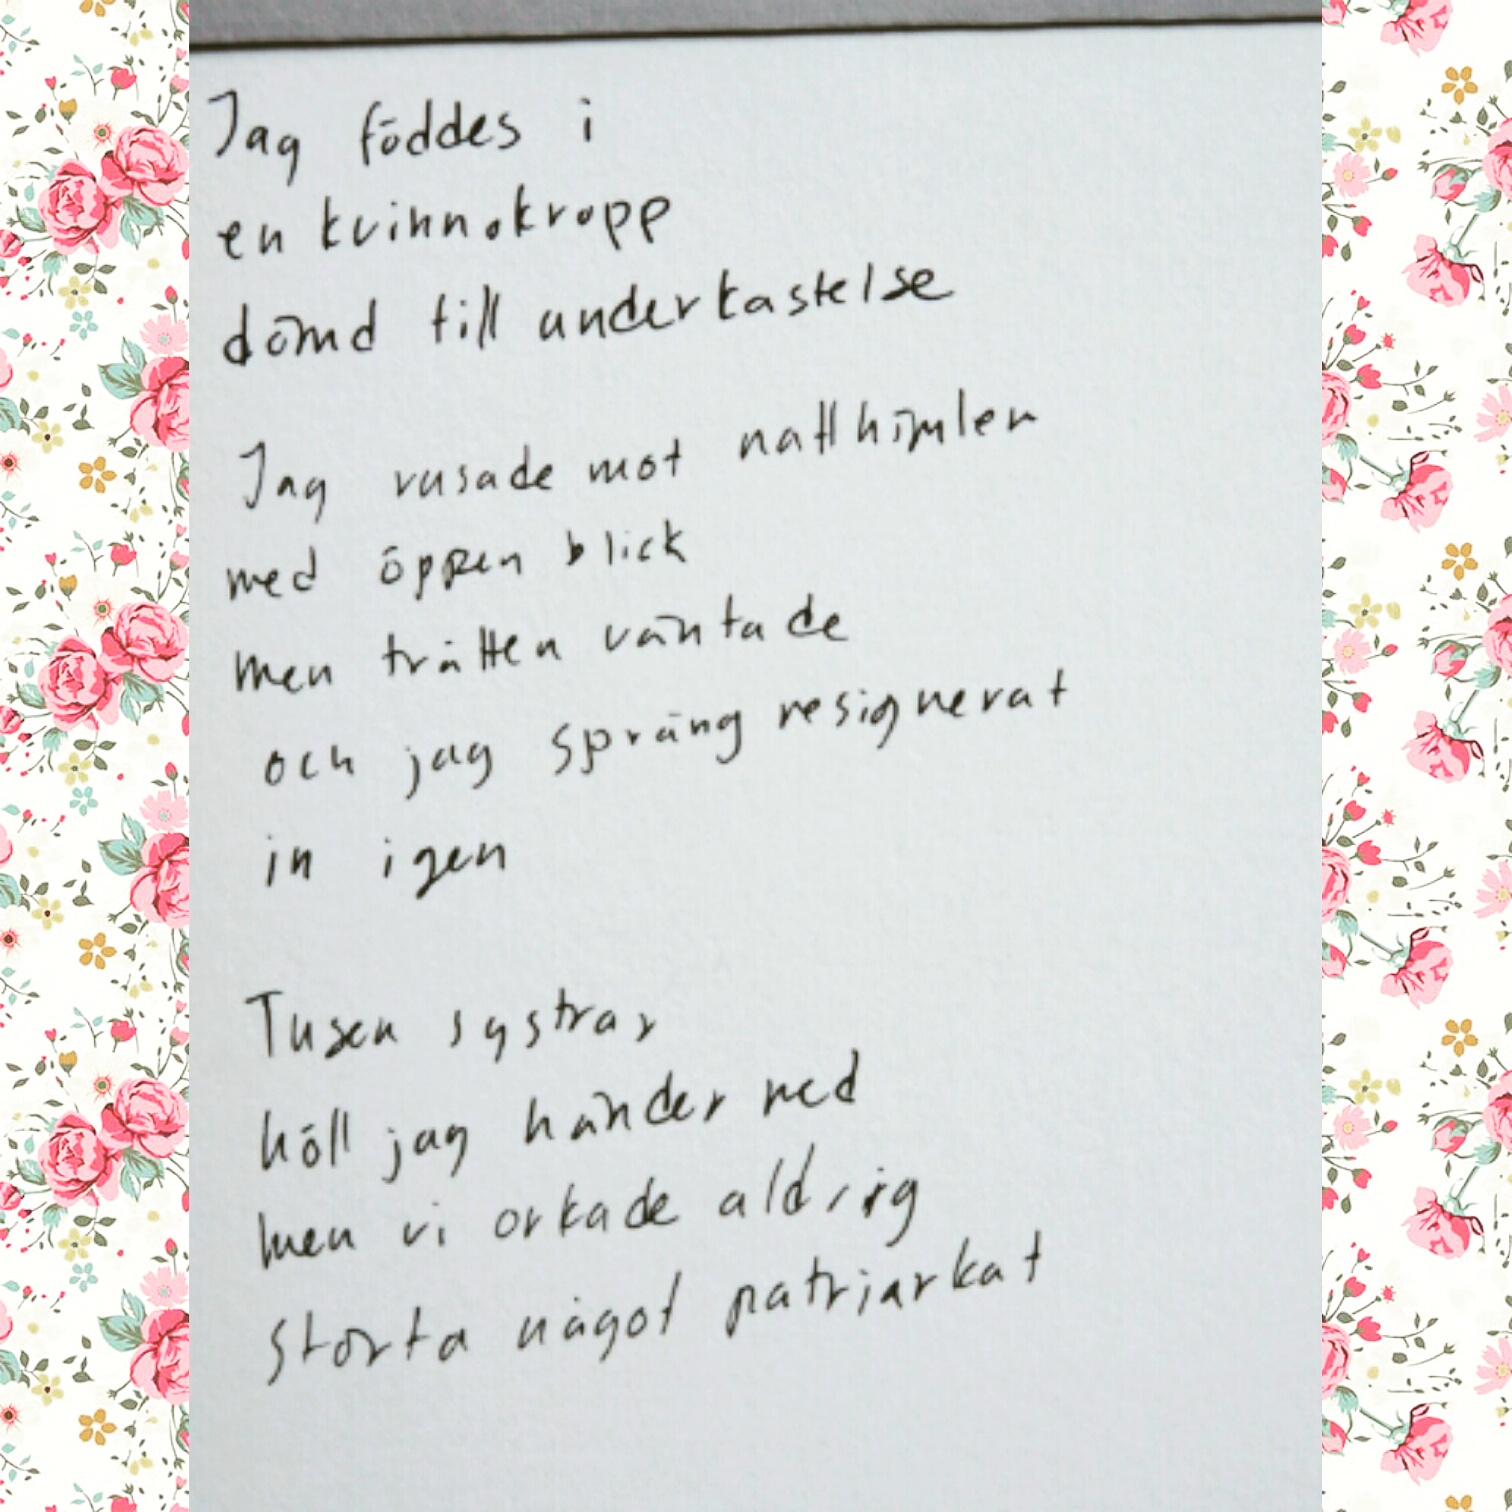 Jag föddes i
en kvinnokropp
dömd till underkastelse
Jag rusade mot natthimlen
med öppen blick
men tråtten väntade
och jag sprang resignerat
in igen
Tusen systrar
höll jag händer med
men vi orkade aldrig
störta något patriarkat